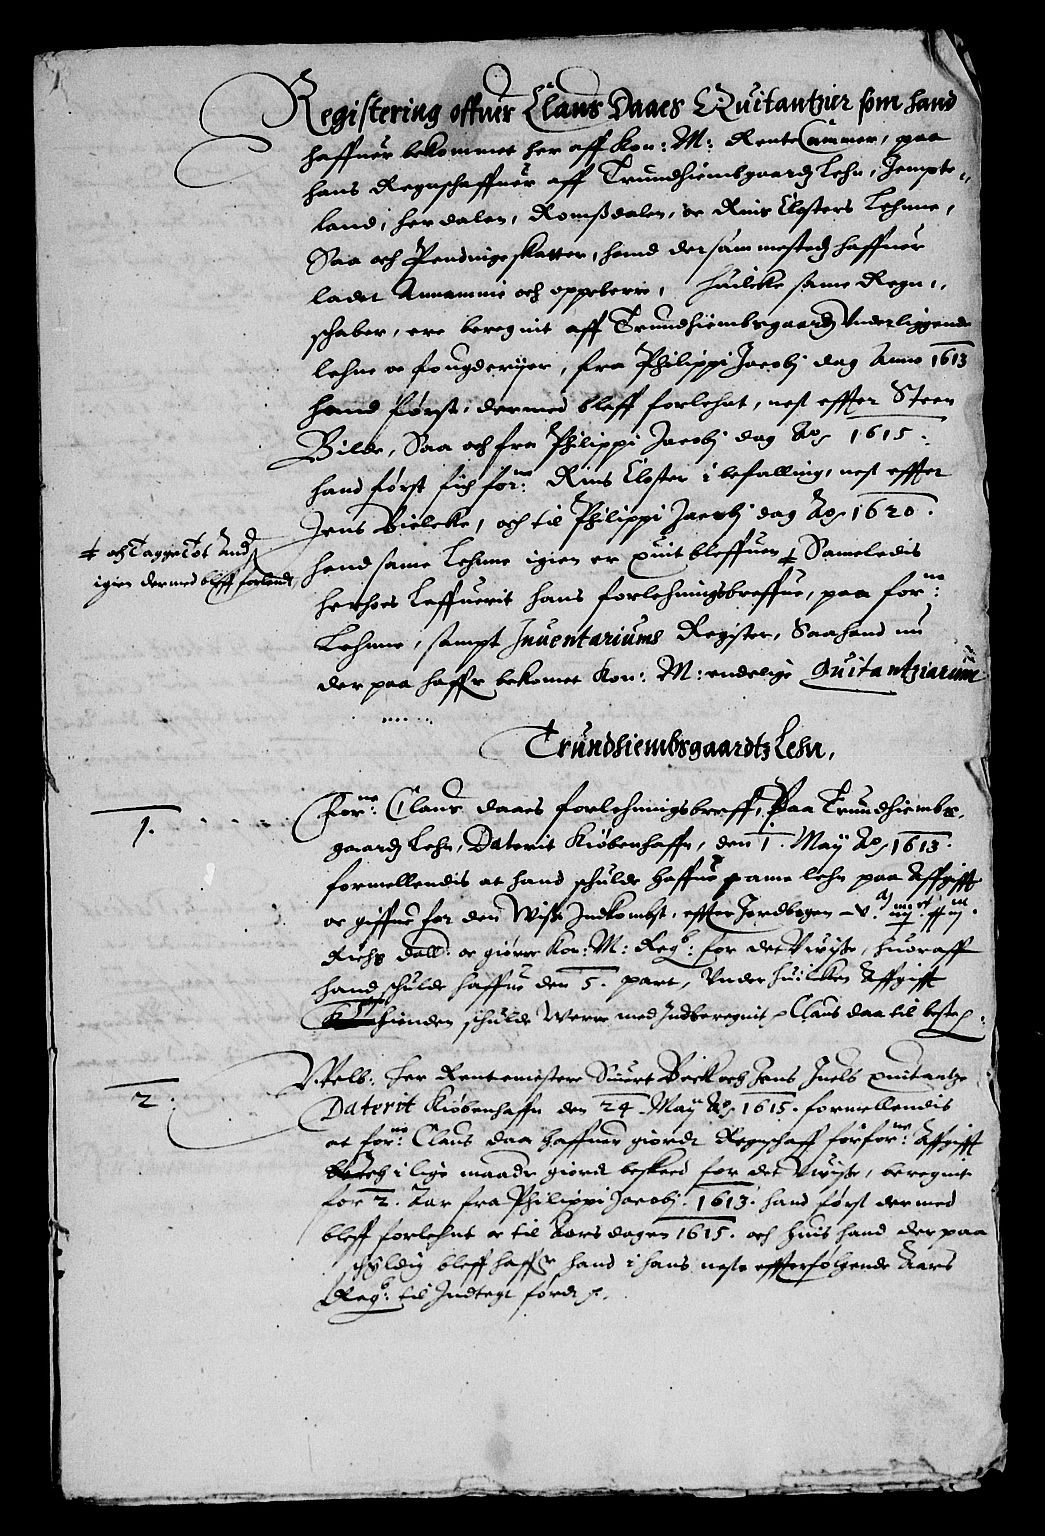 Registering offuer Claus Daaes Quitantzier som hand
haffuer bekommet her aff Kon: M: Rente Cammer, paa
hans Regnschaffuer aff Trundhiembgaardz Lehn, Jempte,,
land, herdalen, Romßdalen, oc Rins Closters Lehnne,
Saa och Pendinge skatter, hand der sammestedz haffuer
ladet Annamme och oppeberre, huilcke same Regn,,
schaber, ere beregnit aff Trundhiembsgaardz Vnderliggende
lehne oc fougderijer, fra Philippi Jacobj dag Anno 1613
hand først, dermed bleff forlehnt, nest effter Steen
Bilde, Saa och fra Philippi Jacobj dag Ao 1615.
hand først fich forne: Rins Closter i befalling, nest effter
Jens Bielcke, och til Philippi Jacobj dag Ao 1620.
hand same Lehnne igien er quit bleffuen ‡ Sameledis
‡ och Tagge Tot And
igien dermed bleff forlendt
herhoes Leffuerit hans forlehningsbreffue, paa forne:
Lehnne, sampt Inuentariums Register, Saa hand nu
der paa haffr bekomet Kon: M: endelige Quitantziarum
Trundhiembsgaardtz Lehn,
1.
Forne: Claus daaes forlehningsbreff, Paa Trundhiembs,
gaardz Lehn, Daterit Kiøbenhaffn, den 1. May Ao 1613.
formellendis at hand schulde haffue same lehn paa Affgifft
oc giffue for den Wisse Indkombst, effter Jordbogen
Richs Dall: oc giørre Kon: M: Regb: for det Vuisse, huoraff
hand schulde haffue den 5. part, Vnder huilcken Affgifft
hienden schulde Were med Indberegnit Claus daa til beste
2.
Velb: her Rentemester Siuert Beck och Jens Juels quitantze
Daterit Kiøbenhaffn den 24. May Ao 1615. formellendis
at forne: Claus daa haffuer giordt Regnschaff for forne: Affgifft
och i lige maade giort besked for det Vuisse, beregnit
for 2. Aar fra Philippi Jacobj 1613. hand først dermed
bleff forlehnt oc til Aars dagen 1615. och huis hand der paa
schyldig bleff haffr hand i hans neste effterfølgende Aars
Regb: til Indtegt førdt